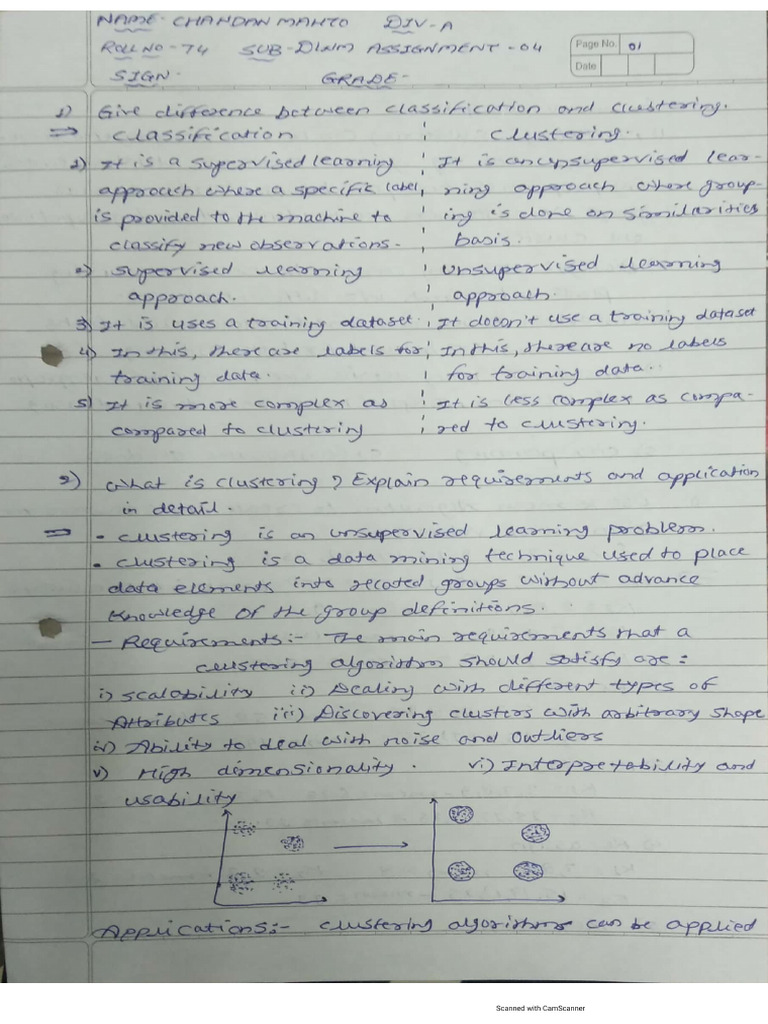 NAME- CHANDAN MAHTO DIV-A
ROLL NO-74 SUB-DWM ASSIGNMENT-04
Page No. 01
SIGN- GRADE-
Date
1) Give difference between classification and clustering.
⇒ classification clustering.
1) It is a supervised learning It is an unsupervised lear-
approach where a specific label ning approach where group-
is provided to the machine to ing is done on similarities
classify new observations. basis.
2) supervised learning unsupervised learning
approach. approach.
3) It is uses a training dataset. It doesn't use a training dataset
4) In this, there are labels for In this, there are no labels
training data. for training data.
5) It is more complex as It is less complex as compa-
compared to clustering red to clustering.
2) What is clustering? Explain requirements and application
in detail.
⇒ • clustering is an unsupervised learning problem.
• clustering is a data mining technique used to place
data elements into related groups without advance
knowledge of the group definitions.
- Requirements:- The main requirements that a
clustering algorithm should satisfy are:
i) scalability ii) Dealing with different types of
Attributes iii) Discovering clusters with arbitrary shape
iv) Ability to deal with noise and outliers
v) High dimensionality. vi) Interpretability and
usability
Applications:- clustering algorithms can be applied
Scanned with CamScanner